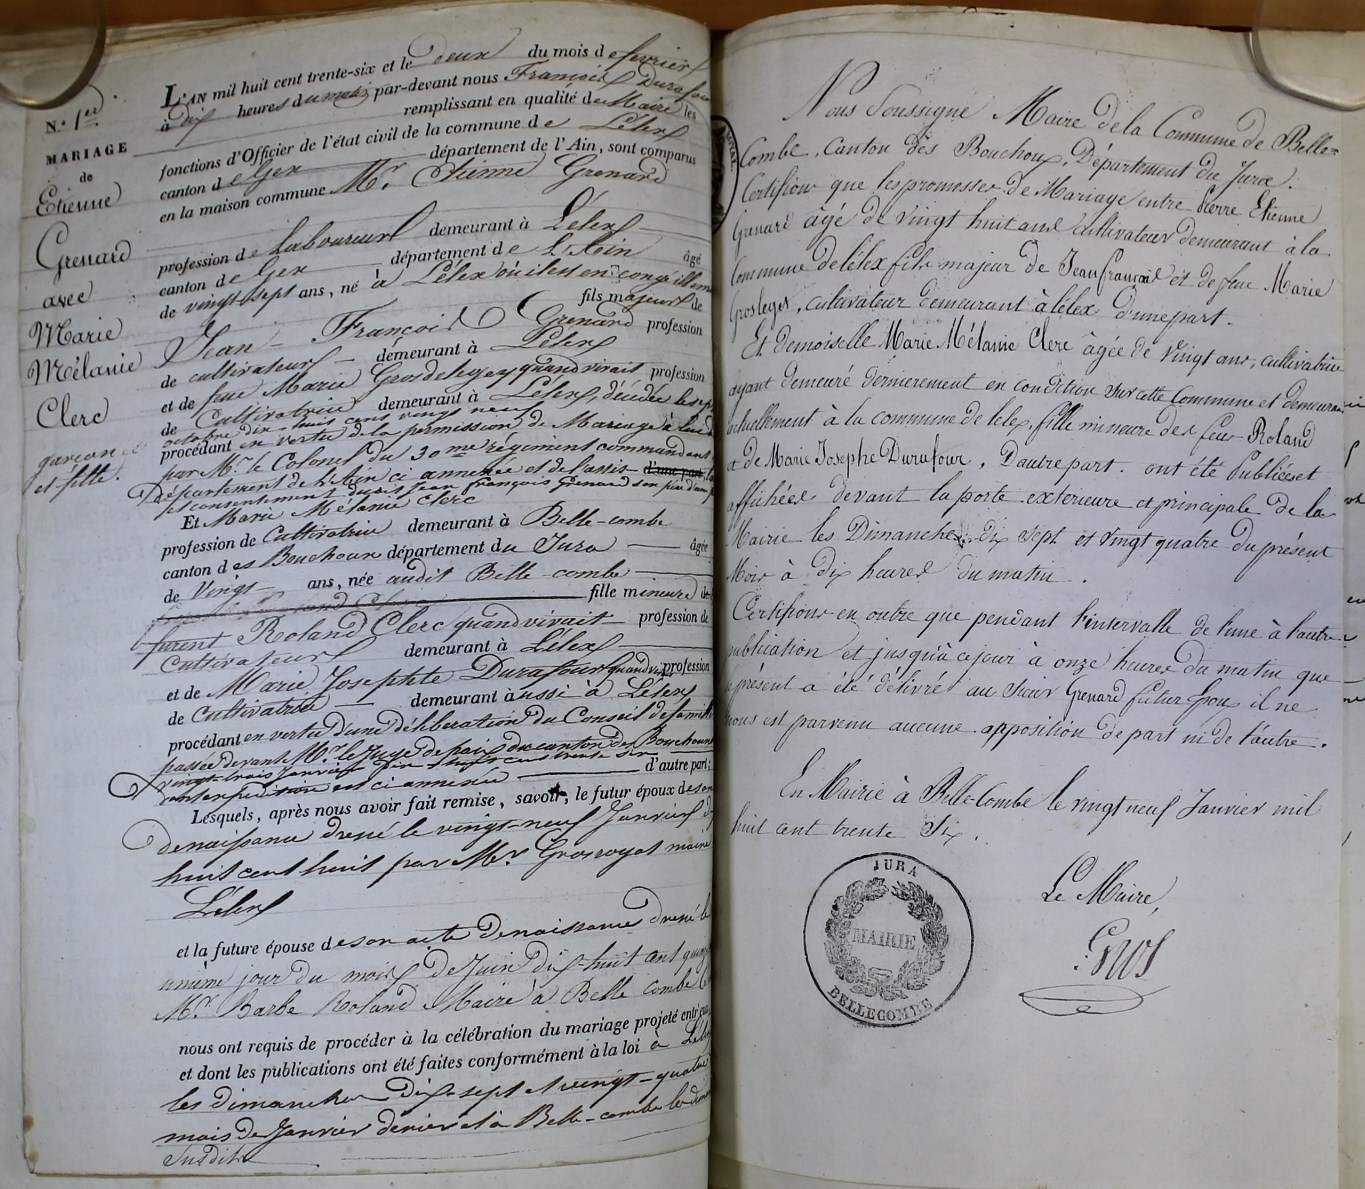 N.º 1er
MARIAGE
de
Etienne
Grenard
avec
Marie
Mélanie
Clerc
garçon
et fille.
L'AN mil huit cent trente-six et le deux du mois de fevrier
à dix heures du matin par-devant nous François Durafour
remplissant en qualité de Maire les
fonctions d'Officier de l'état civil de la commune de Lélex
canton de Gex département de l'Ain, sont comparus
en la maison commune Mr. Etienne Grenard
profession de laboureur demeurant à Lélex
canton de Gex département de l'Ain âgé
de vingt sept ans, né à Lélex où il est en congé illim
fils majeur de
Jean-François Grenard profession
de cultivateur demeurant à Lélex
et de feue Marie Grosdelegex quand vivait profession
de Cultivatrice demeurant à Lélex, décédée le sept
octobre dix huit cent vingt neuf
procédant en vertu de la permission de Mariage à lui
par Mr. le Colonel du 30me régiment commandant
Département de l'Ain ci annexée et de l'assis d'une part,
consentement dudit Jean François Grenard son père d'une
Et Marie Mélanie Clerc
profession de Cultivatrice demeurant à Belle-combe
canton des Bouchoux département du Jura âgée
de Vingt ans, née audit Belle-combe
fille mineure de
furent Roland Clerc quand vivait profession de
Cultivateur demeurant à Lélex
et de Marie Josephte Durafour quand viv profession
de Cultivatrice demeurant aussi à Lélex
procédant en vertu d'une délibération du Conseil de famille
passée devant Mr. le Juge de paix du canton des Bouchoux
vingt trois janvier dix huit cent trente six
dont expédition est ci annexée d'autre part;
Lesquels, après nous avoir fait remise, savoir, le futur époux de son
de naissance dressé le vingt-neuf Janvier
huit cent huit par Mr. Grosroyat maire
Lélex
et la future épouse de son acte de naissance dressé le
unième jour du mois de Juin dix-huit cent quinze
Mr. Barbe Roland Maire à Belle combe
nous ont requis de procéder à la célébration du mariage projeté entr'eux
et dont les publications ont été faites conformément à la loi à Lélex
les dimanches Dix-sept et vingt-quatre
mois de Janvier dernier et à Belle-combe les
susdits
Nous Soussigné Maire de la Commune de Belle=
Combe, Canton des Bouchoux, Département du Jura.
Certifions que les promesses de Mariage entre Pierre Etienne
Grenard âgé de vingt huit ans cultivateur demeurant à la
Commune de lélex fils majeur de Jean françois et de feue Marie
Groslegex, cultivateur demeurant à lélex d'une part.
Et demoiselle Marie Mélanie Clerc âgée de vingt ans, cultivatrice
ayant demeuré dernierement en condition sur cette Commune et demeurant
actuellement à la commune de lélex, fille mineure des feus Roland
et de Marie Josephe Durafour, D'autre part. ont été Publiées et
affichées devant la porte exterieure et principale de la
Mairie les Dimanches dix sept et vingt quatre du présent
Mois à dix heures du matin.
Certifions en outre que pendant l'intervalle de l'une à l'autre
publication et jusqu'à ce jour à onze heures du matin que
le présent a été délivré au Sieur Grenard futur Epoux il ne
nous est parvenu aucune apposition de part ni de l'autre.
En Mairie à Belle-Combe le vingt neuf Janvier mil
huit cent trente Six.
Le Maire,
Gros
JURA
MAIRIE
BELLECOMBE